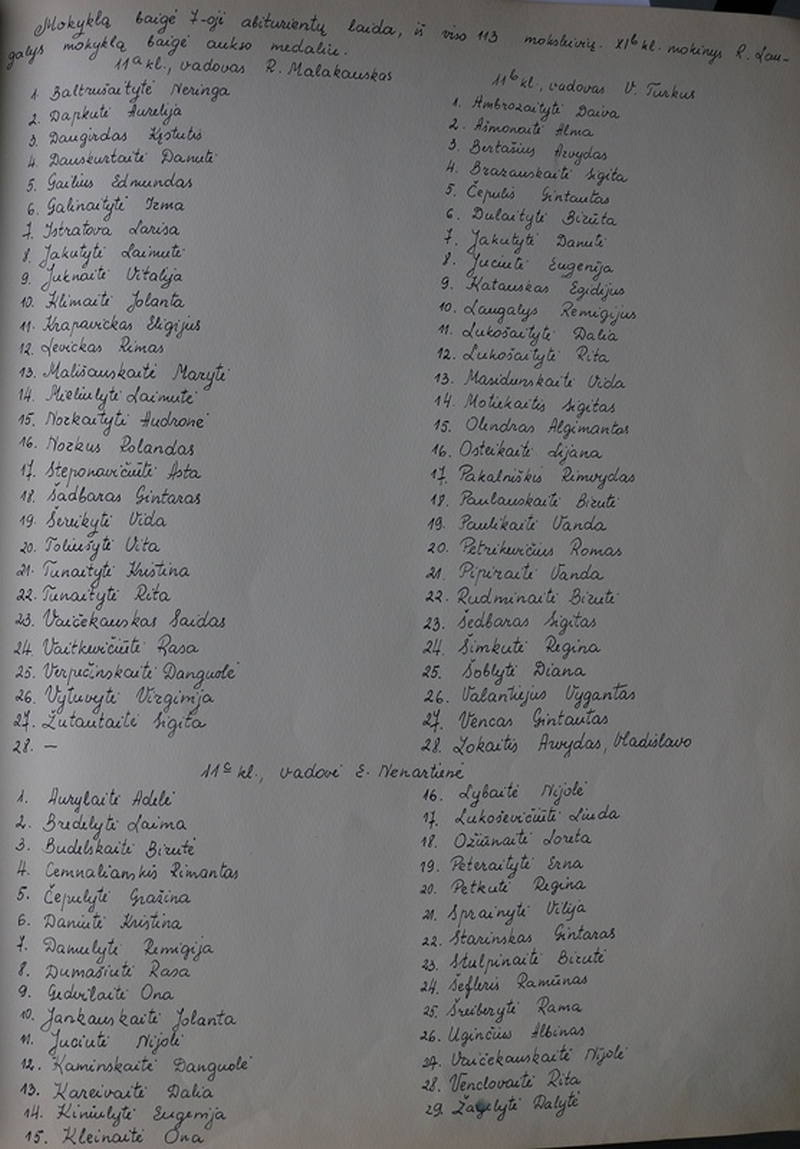 Mokyklą baigė 7-oji abiturientų laida, iš viso 113 moksleivių. XI b kl. mokinys R. Lau-
galys mokyklą baigė aukso medaliu.
11a kl., vadovas R. Malakauskas
1. Baltrušaitytė Neringa
2. Dapkutė Aurelija
3. Daugirdas Kęstutis
4. Dauskurtaitė Danutė
5. Gailius Edmundas
6. Galinaitytė Irma
7. Istratova Larisa
8. Jakutytė Laimutė
9. Juknaitė Vitalija
10. Klimaitė Jolanta
11. Krapavickas Eligijus
12. Levickas Rimas
13. Mališauskaitė Marytė
14. Mieliulytė Laimutė
15. Norkaitytė Audronė
16. Norkus Rolandas
17. Steponavičiūtė Asta
18. Šadbaras Gintaras
19. Šereikytė Vida
20. Toliušytė Vita
21. Tunaitytė Kristina
22. Tunaitytė Rita
23. Vaičekauskas Saidas
24. Vaitkevičiūtė Rasa
25. Verpečinskaitė Danguolė
26. Vytuvytė Virginija
27. Žutautaitė Sigita
28. —
11b kl., vadovas V. Turkus
1. Ambrozaitytė Daiva
2. Ašmonaitė Alma
3. Bertašius Arvydas
4. Brazauskaitė Sigita
5. Čepulis Gintautas
6. Dulaitytė Birūta
7. Jakutytė Danutė
8. Juciutė Eugenija
9. Katauskas Egidijus
10. Laugalys Remigijus
11. Lukošaitytė Dalia
12. Lukošaitytė Rita
13. Masidunskaitė Vida
14. Motiekaitis Sigitas
15. Olendras Algimantas
16. Osteikaitė Lijana
17. Pakalniškis Rimvydas
18. Paulauskaitė Birutė
19. Paulikaitė Vanda
20. Petrikevičius Romas
21. Pipiraitė Vanda
22. Rudminaitė Birutė
23. Šedbaras Sigitas
24. Šimkutė Regina
25. Šoblytė Diana
26. Valantiejus Vygantas
27. Vencas Gintautas
28. Lokaitis Arvydas, Vladislavo
11c kl., vadovė E. Nenartienė
1. Aurylaitė Adelė
2. Bredelytė Laima
3. Budelskaitė Birutė
4. Cemnolianskis Rimantas
5. Čepulytė Gražina
6. Daniutė Kristina
7. Damulytė Remigija
8. Dumašiutė Rasa
9. Gedvilaitė Ona
10. Jankauskaitė Jolanta
11. Juciutė Nijolė
12. Kaminskaitė Danguolė
13. Kareivaitė Dalia
14. Kiniulytė Eugenija
15. Kleinaitė Ona
16. Lybaitė Nijolė
17. Lukoševičiūtė Liuda
18. Ožiūnaitė Loreta
19. Peteraitytė Erna
20. Petkutė Regina
21. Sprainytė Vilija
22. Starinskas Gintaras
23. Stulpinaitė Birutė
24. Šefleris Ramūnas
25. Šreiberytė Rama
26. Uginčius Albinas
27. Vaičekauskaitė Nijolė
28. Venclovaitė Rita
29. Dalytė